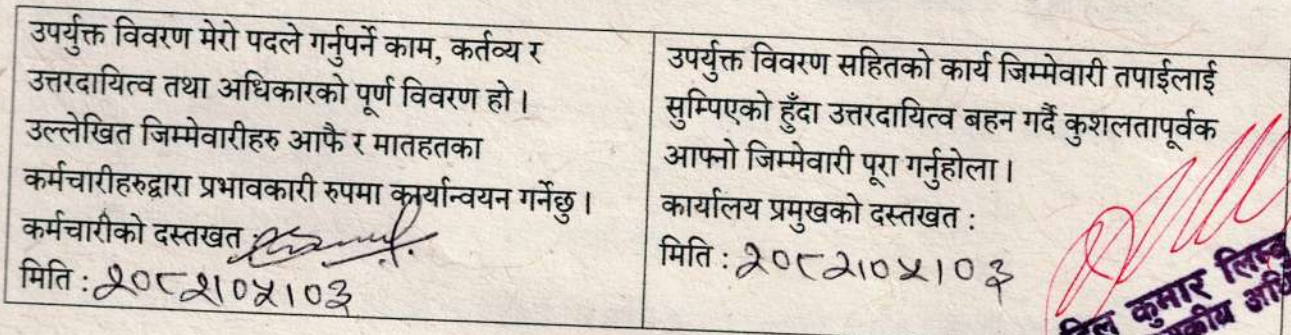 उपर्युक्त विवरण मेरो पदले गर्नुपर्ने काम, कर्तव्य र
उत्तरदायित्व तथा अधिकारको पूर्ण विवरण हो ।
उल्लेखित जिम्मेवारीहरु आफै र मातहतका
कर्मचारीहरुद्वारा प्रभावकारी रुपमा कार्यान्वयन गर्नेछु ।
कर्मचारीको दस्तखत
मिति : २०८२।०५।०३
उपर्युक्त विवरण सहितको कार्य जिम्मेवारी तपाईलाई
सुम्पिएको हुँदा उत्तरदायित्व बहन गर्दै कुशलतापूर्वक
आफ्नो जिम्मेवारी पूरा गर्नुहोला ।
कार्यालय प्रमुखको दस्तखत :
मिति : २०८२।०५।०३
कुमार